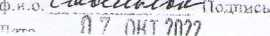 Ф.И.О. Подпись
Дата 07 ОКТ 2022